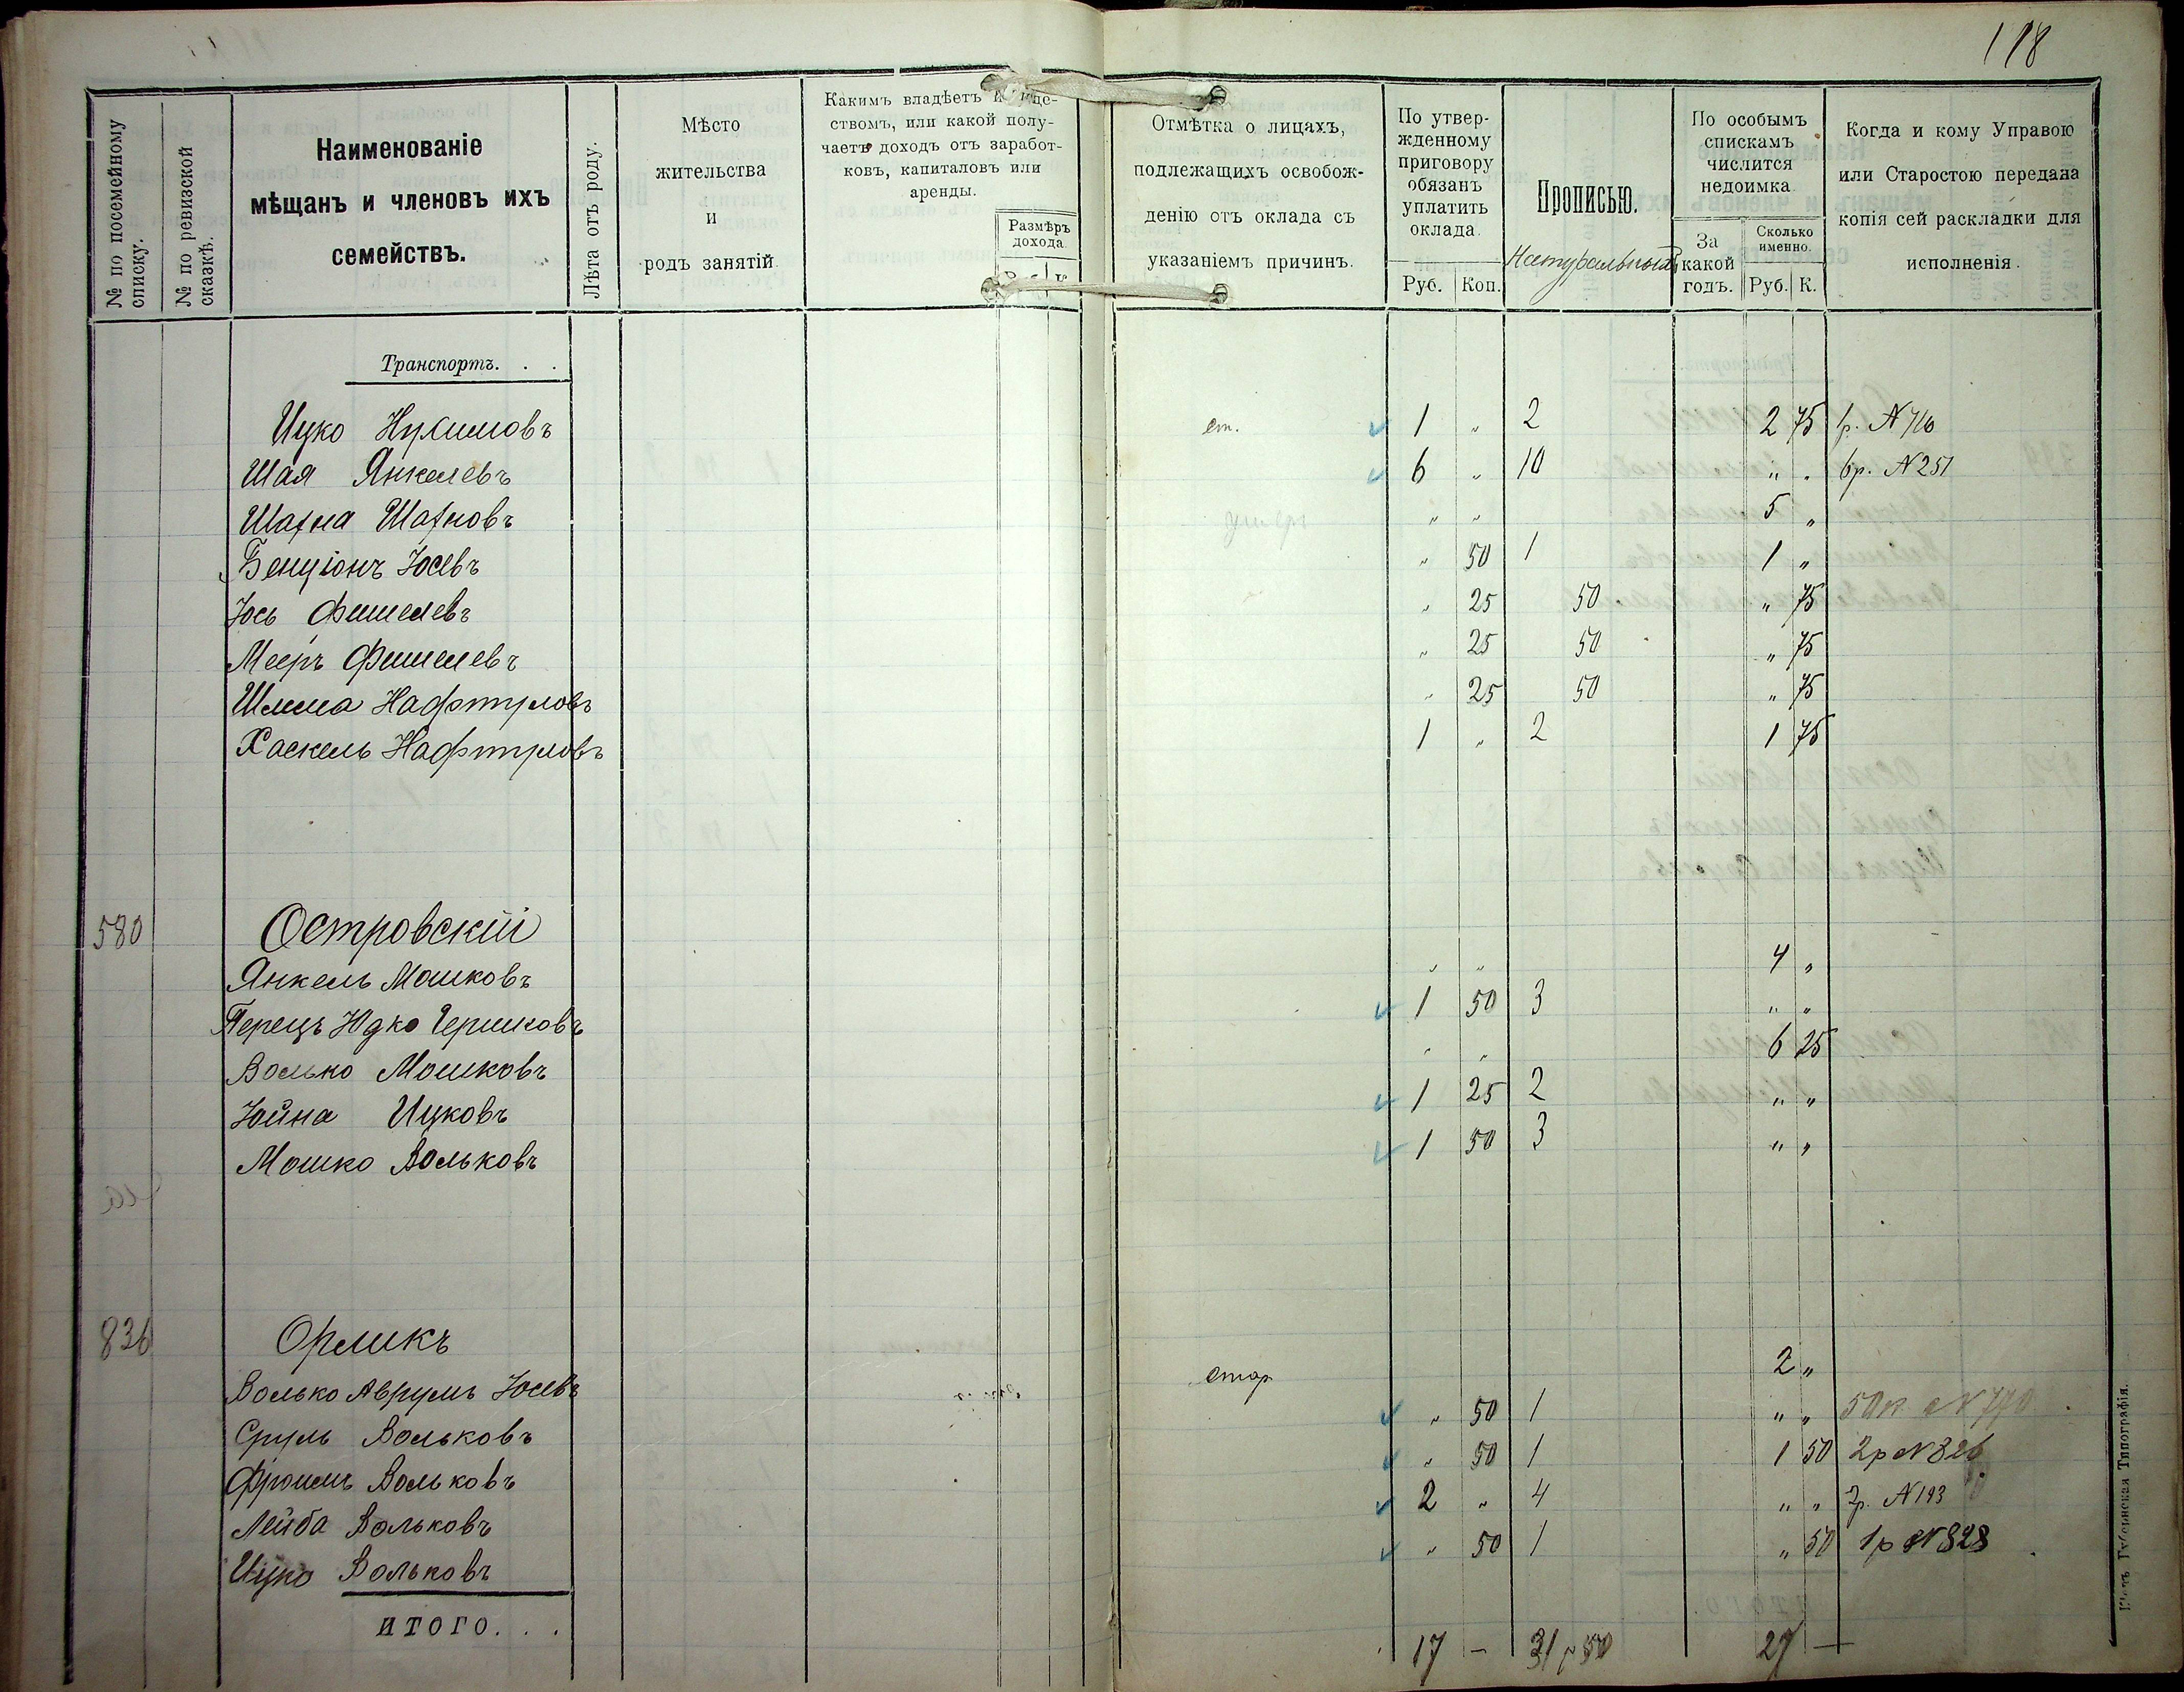 118
№ по посемейному списку.
№ по ревизской сказкѣ.
Наименованіе мѣщанъ и членовъ ихъ семействъ.
Лѣта отъ роду.
Мѣсто жительства и родъ занятій.
Какимъ владѣетъ
ствомъ, или какой полу-
чаетъ доходъ отъ заработ-
ковъ, капиталовъ или
аренды.
Размѣръ дохода.
Отмѣтка о лицахъ,
подлежащихъ освобож-
денію отъ оклада съ
указаніемъ причинъ.
По утвер-
жденному
приговору
обязанъ
уплатить
оклада.
Руб. Коп.
Прописью.
Натуральный
По особымъ
спискамъ
числится
недоимка.
За какой годъ.
Сколько именно.
Руб. К.
Когда и кому Управою
или Старостою передана
копія сей раскладки для
исполненія.
Транспортъ. . .
Ицко Нухимовъ ст. 1 " 2 2 75 1р. № 716
Шая Янкелевъ 6 " 10 " " 6р. № 251
Шахна Шахновъ " " 5 "
Бенціонъ Іосевъ " 50 1 1 "
Іось Фишелевъ " 25 50 " 75
Мееръ Фишелевъ " 25 50 " 75
Шлема Нафтуловъ " 25 50 " 75
Хаскель Нафтуловъ 1 " 2 1 75
580 Островскій
Янкель Мошковъ " " 4 "
Перецъ Юдко Гершковъ 1 50 3 " "
Волько Мошковъ " " 6 25
Іойна Ицковъ 1 25 2 " "
Мошко Вольковъ 1 50 3 " "
836 Орликъ
Волько Аврумъ Іосевъ стар 2 "
Сруль Вольковъ " 50 1 " " 50к № 770
Фроимъ Вольковъ " 50 1 1 50 2р № 826
Лейба Вольковъ 2 " 4 " " 2р. № 193
Ицко Вольковъ " 50 1 " 50 1р № 828
ИТОГО. . .
17 - 31 р 50 27 -
Типографія.